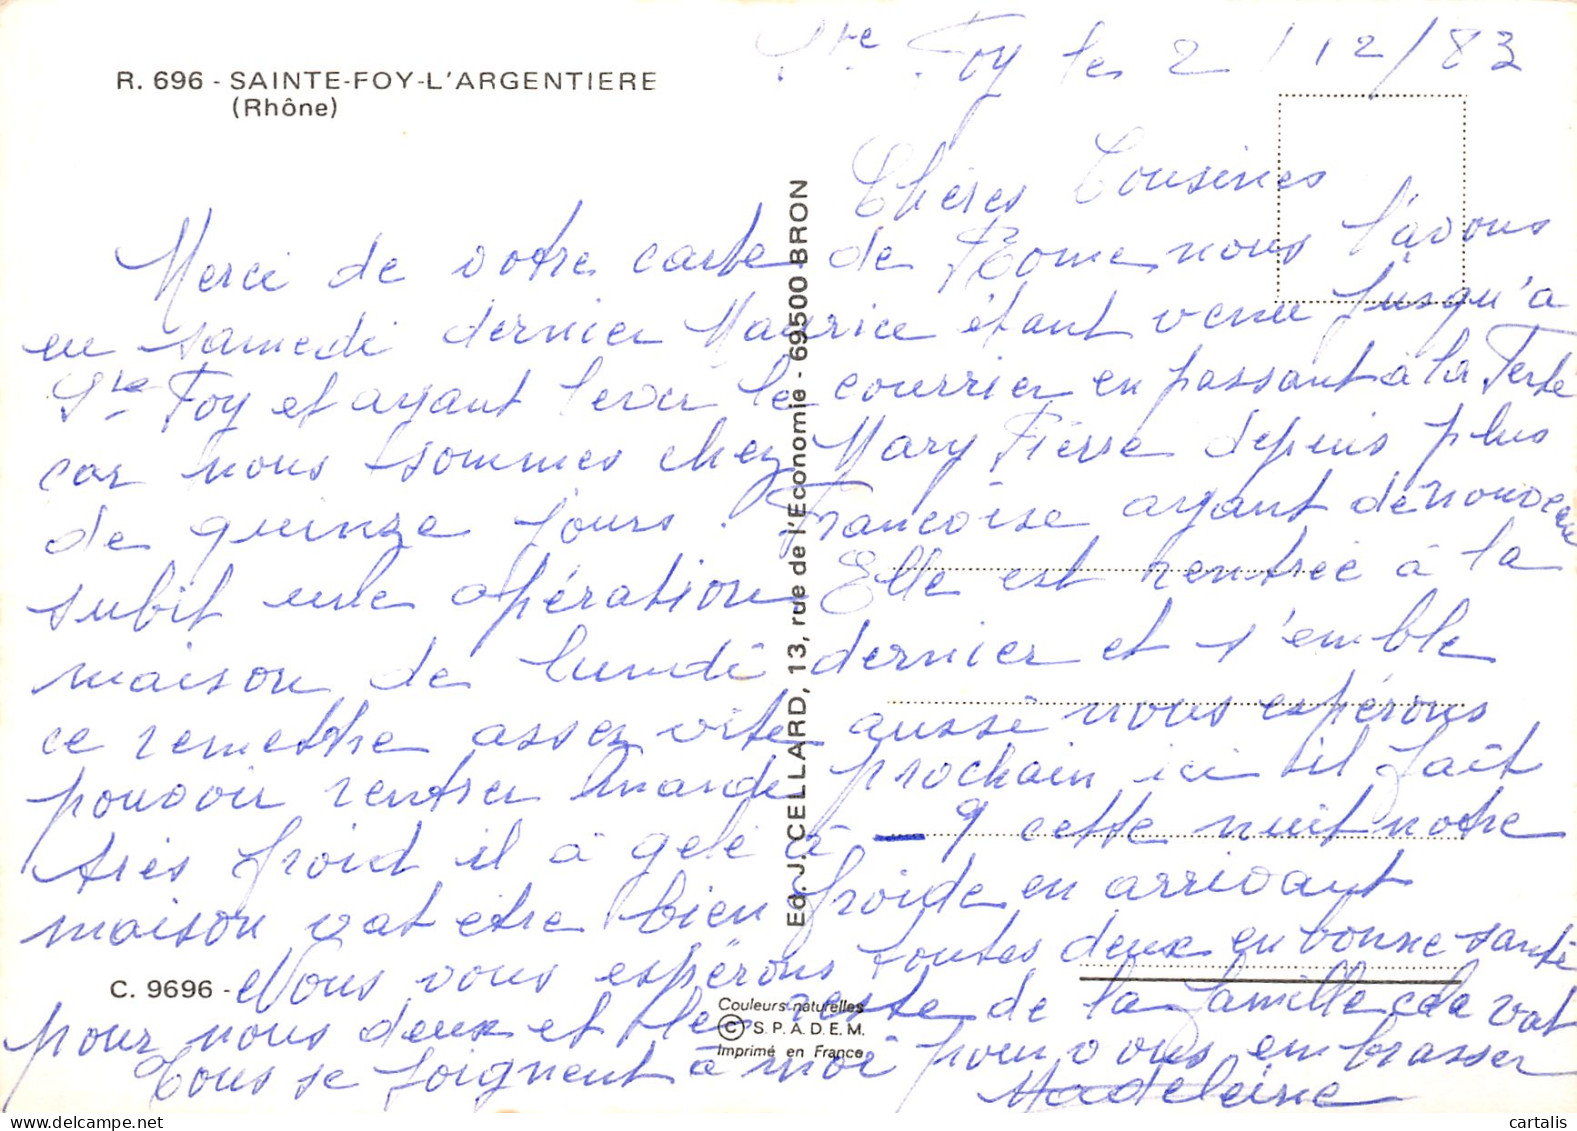 R. 696 - SAINTE-FOY-L'ARGENTIERE
(Rhône)
Ste Foy le 2/12/83
Chères Cousines
Merci de votre carte de Rome nous l'avons
eu samedi dernier Maurice étant venu jusqu'a
Ste Foy et ayant lever le courrier en passant à la Ferté
car nous sommes chez Mary Pierre depuis plus
de quinze jours. Francoise ayant de nouveau
subit une opération Elle est rentrée à la
maison de lundi dernier et s'emble
ce remettre assez vite aussi nous espérons
pouvoir rentrer mardi prochain ici il fait
très froid il à gelé à - 9 cette nuit notre
maison vat etre bien froide en arrivant
Nous vous espérons toutes deux en bonne santé
pour nous deux et le reste de la famille cela vat
Tous se joignent à moi pour vous embrasser
Madeleine
Ed. J. CELLARD, 13, rue de l'Economie - 69500 BRON
C. 9696 -
Couleurs naturelles
© S.P.A.D.E.M.
Imprimé en France
www.delcampe.net
cartalis